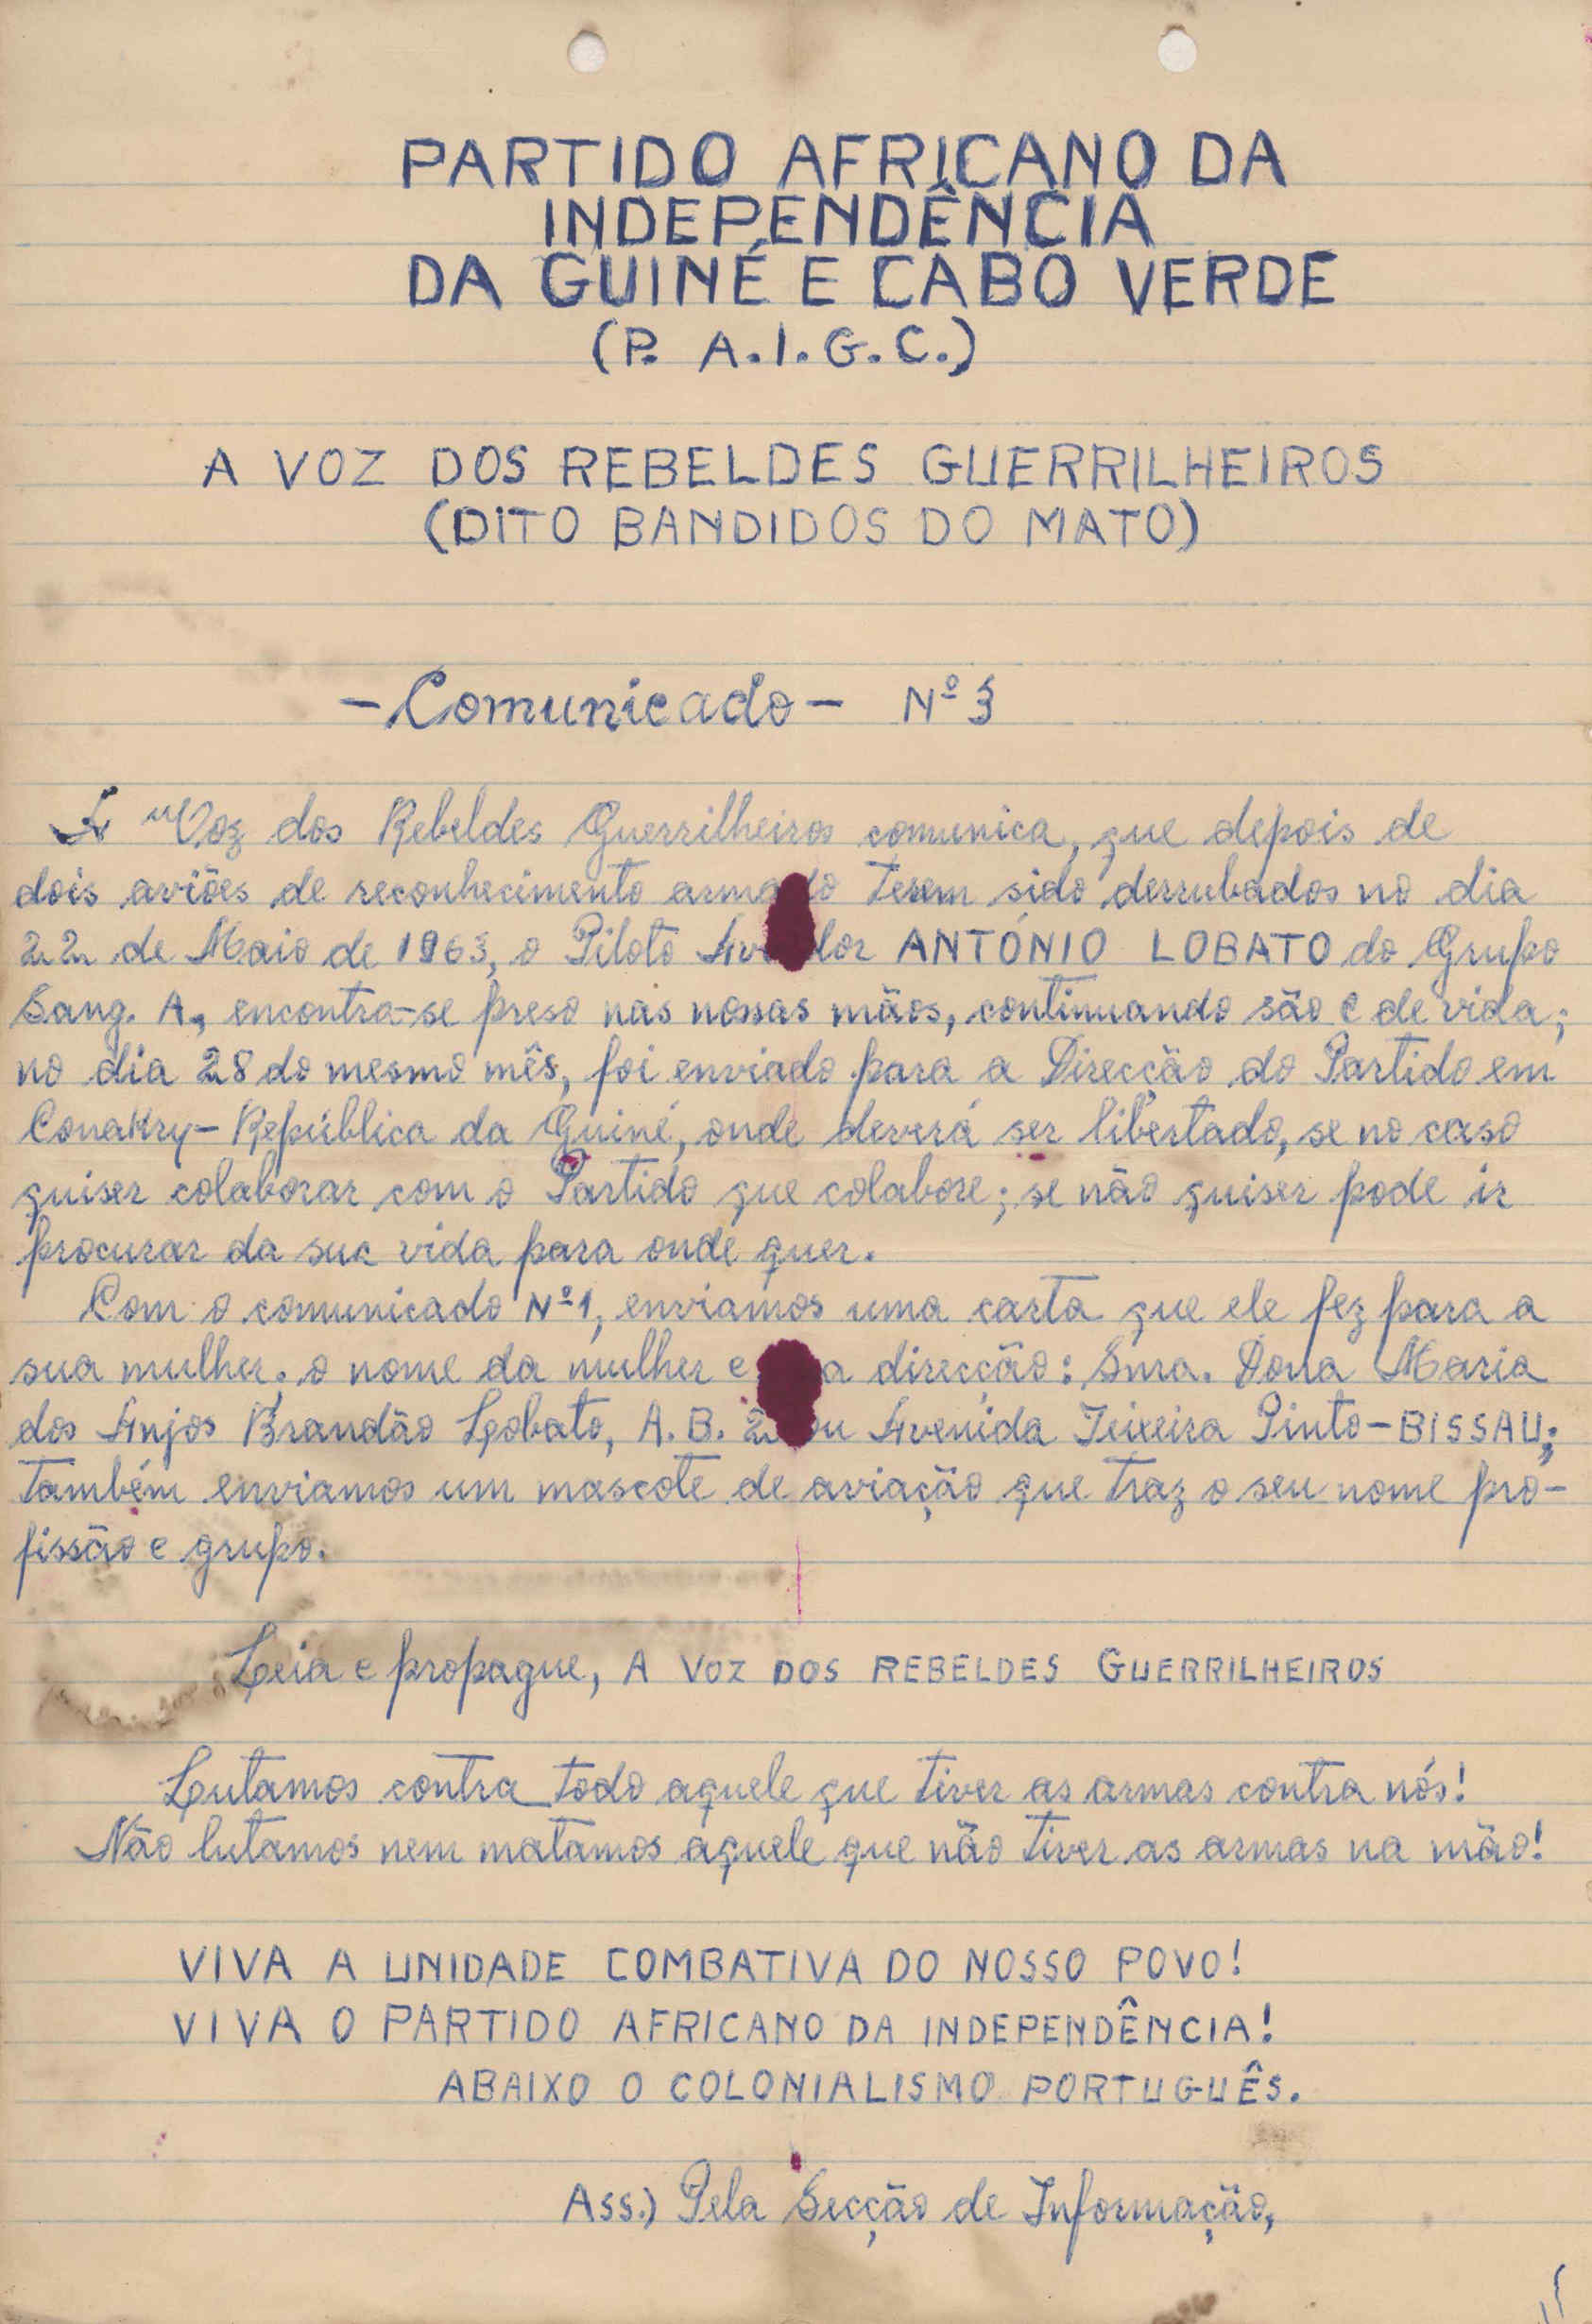 PARTIDO AFRICANO DA
INDEPENDÊNCIA
DA GUINÉ E CABO VERDE
(P. A.I.G.C.)
A VOZ DOS REBELDES GUERRILHEIROS
(DITO BANDIDOS DO MATO)
-Comunicado- Nº 3
A "Voz dos Rebeldes Guerrilheiros comunica, que depois de
dois aviões de reconhecimento terem sido derrubados no dia
22 de Maio de 1963, o Piloto ANTÓNIO LOBATO do Grupo
Sang. A, encontra-se preso nas nossas mãos, continuando são e de vida;
no dia 28 do mesmo mês, foi enviado para a Direcção do Partido em
Conakry- República da Guiné, onde deverá ser libertado, se no caso
quiser colaborar com o Partido que colabore; se não quiser pode ir
procurar da sua vida para onde quer.
Com o comunicado Nº 1, enviamos uma carta que ele fez para a
sua mulher; o nome da mulher e direcção: Snra. Dona Maria
dos Anjos Brandão Lobato, A. B. 2 Avenida Teixeira Pinto-BISSAU;
também enviamos um mascote de aviação que traz o seu nome pro-
fissão e grupo.
Leia e propague, A VOZ DOS REBELDES GUERRILHEIROS
Lutamos contra todo aquele que tiver as armas contra nós!
Não lutamos nem matamos aquele que não tiver as armas na mão!
VIVA A UNIDADE COMBATIVA DO NOSSO POVO!
VIVA O PARTIDO AFRICANO DA INDEPENDÊNCIA!
ABAIXO O COLONIALISMO PORTUGUÊS.
ASS.) Pela Secção de Informação,